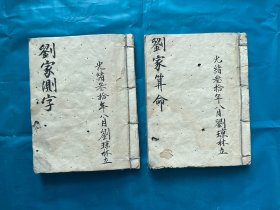 劉家測字
光緒叁拾年八月劉琼林立
劉家算命
光緒叁拾年八月劉琼林立